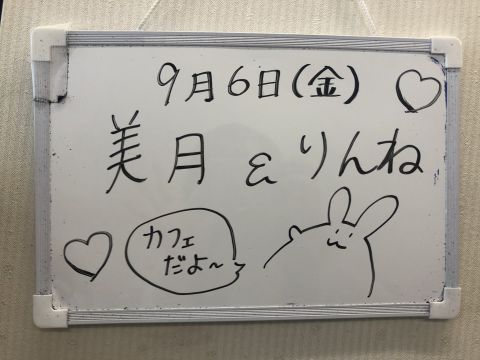 9月6日(金)
美月 & りんね
カフェ
だよ〜